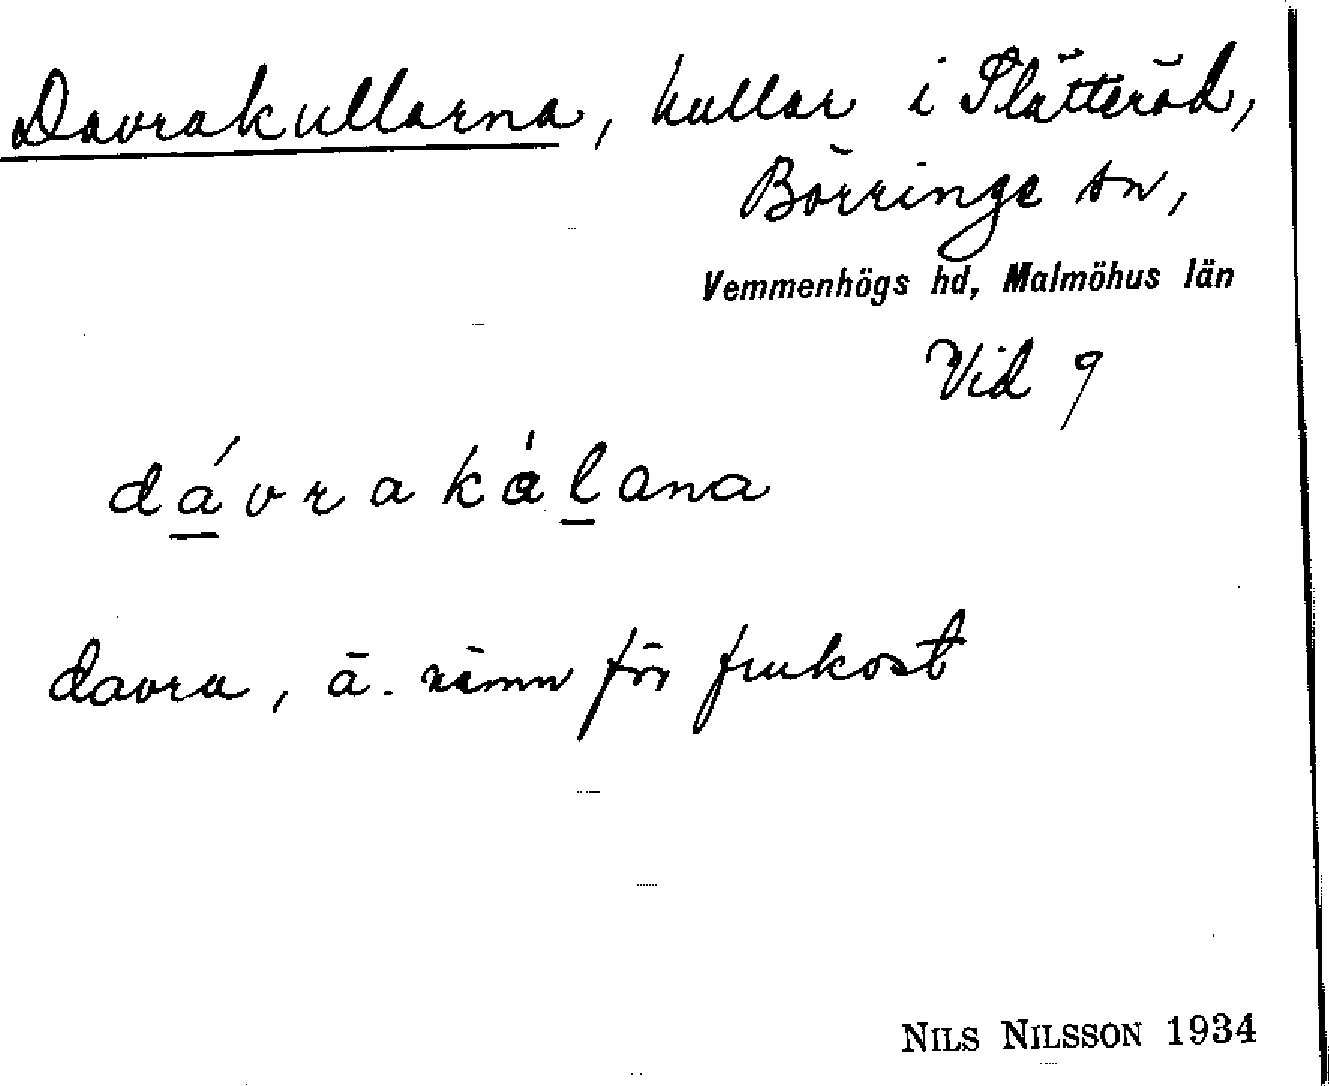 Davrakullarna, kullar i Slätteröd,
Börringe sn,
Vemmenhögs hd, Malmöhus län
Vid 9
dávrakálana
davra, ä. nämn för frukost
NILS NILSSON 1934